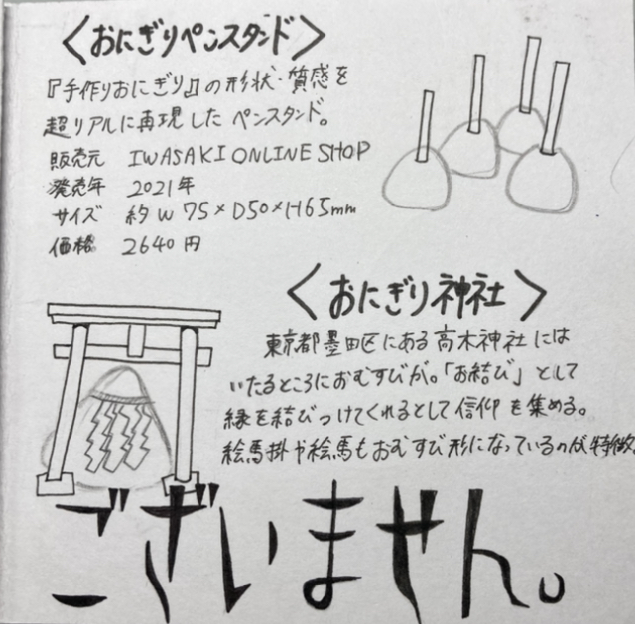 〈おにぎりペンスタンド〉
『手作りおにぎり』の形状・質感を
超リアルに再現したペンスタンド。
販売元 IWASAKI ONLINE SHOP
発売年 2021年
サイズ 約W75×D50×H65mm
価格 2640円
〈おにぎり神社〉
東京都墨田区にある高木神社には
いたるところにおむすびが。「お結び」として
縁を結びつけてくれるとして信仰を集める。
絵馬掛や絵馬もおむすび形になっているのが特徴。
ございません。